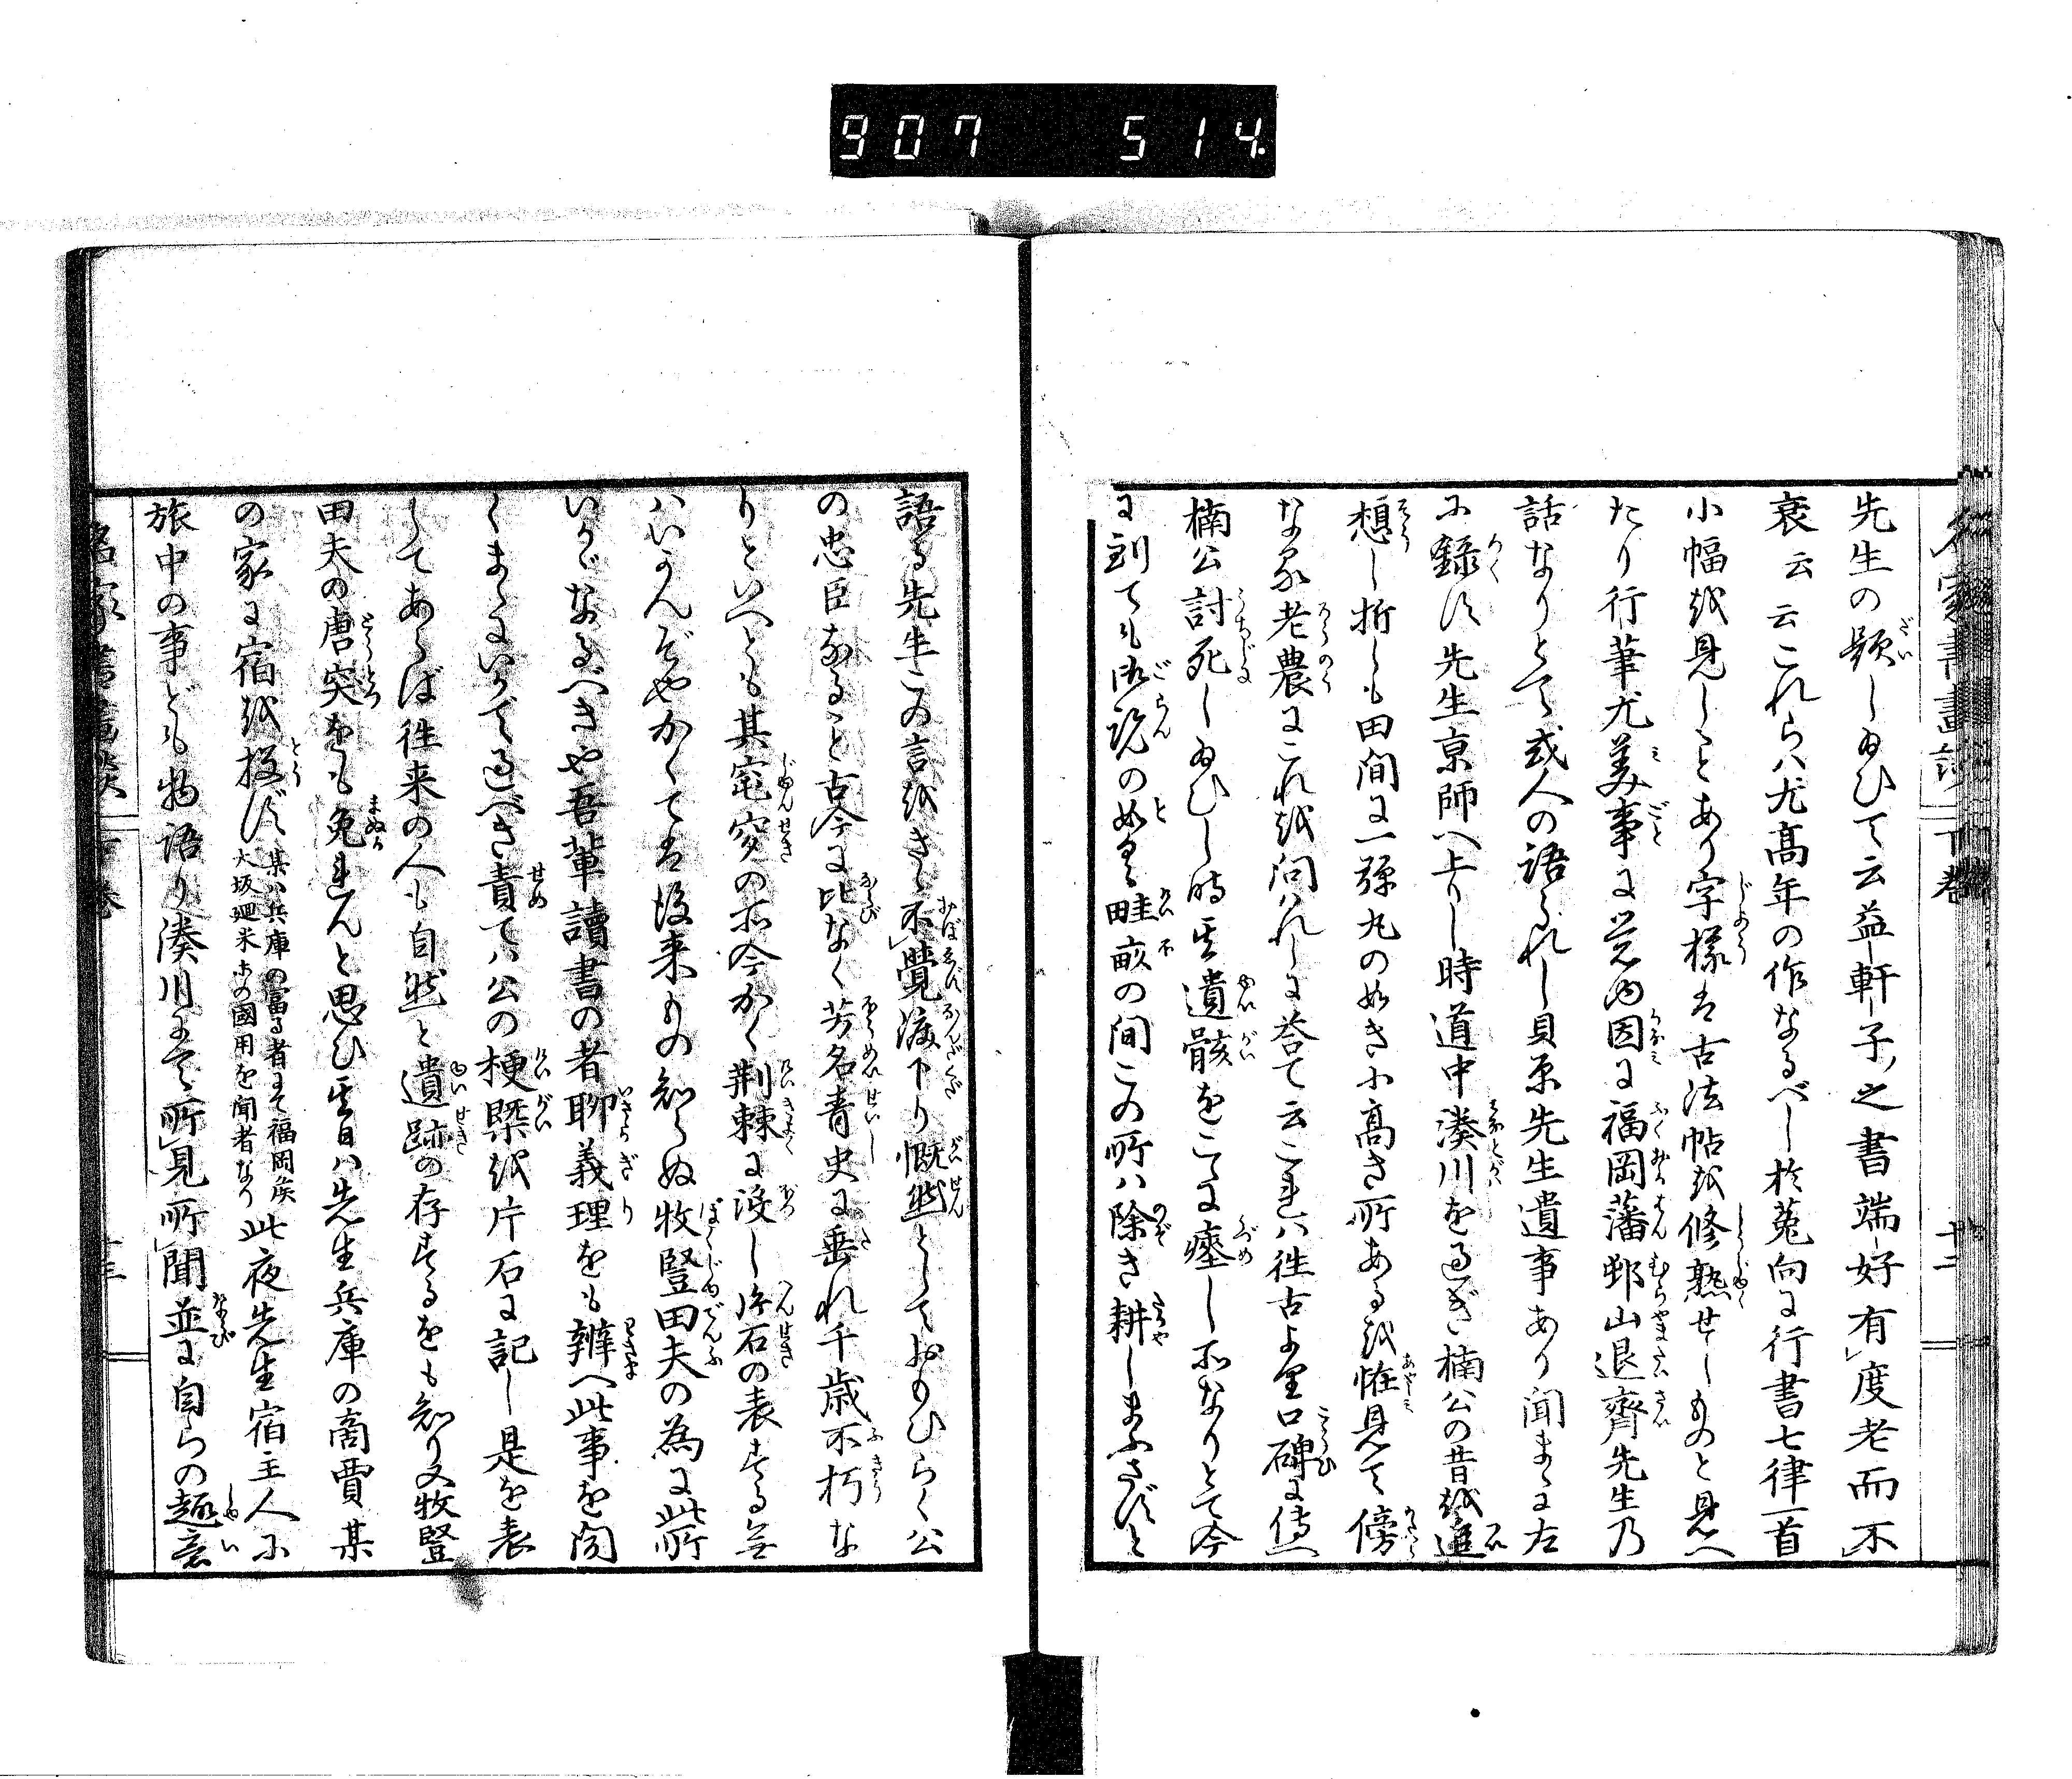 907 514
先生の題し給ひて云益軒子之書端好有度老而不
衰云云これらハ尤高年の作なるべし於菟向に行書七律一首
小幅を見しことあり字樣は古法帖を修熟せしものと見へ
たり行筆尤美事に覚ゆ因に福岡藩邨山退齊先生乃
話なりとて或人の語られし貝原先生遺事あり聞まゝに左
に録す先生京師へ上りし時道中湊川を過ぎ楠公の昔を追
想し折しも田間に一彈丸の如き小高き所あるを恠見て傍
な家老農にこれを問ハれしに答て云これハ徃古より里口碑に傳へ
楠公討死し給ひし時其遺骸をこゝに瘞し所なりとて今
に到ても御覧の如く畦畝の間この所ハ除き耕しまふさずと
語る先生この言をきゝ不覺涙下り慨然としておもひらく公
の忠臣なること古今に比なく芳名青史に垂れ千歳不朽な
りといへとも其窀穸の所今かく荆棘に没し片石の表する無
ハいかんぞやかくては後来もの知らぬ牧豎田夫の為に此所
いかゞなるべきや吾輩讀書の者聊義理をも辨へ此事を聞
くまゝにいかで過べき責てハ公の梗槩を片石に記し是を表
してあらば徃来の人も自然と遺跡の存するをも知り又牧豎
田夫の唐突をも免れんと思ひ其日ハ先生兵庫の商賈某
の家に宿を投ず
某ハ兵庫の富る者にて福岡侯
大坂廻米等の國用を聞者なり
此夜先生宿主人に
旅中の事ども物語り湊川にて所見所聞並に自らの趣意